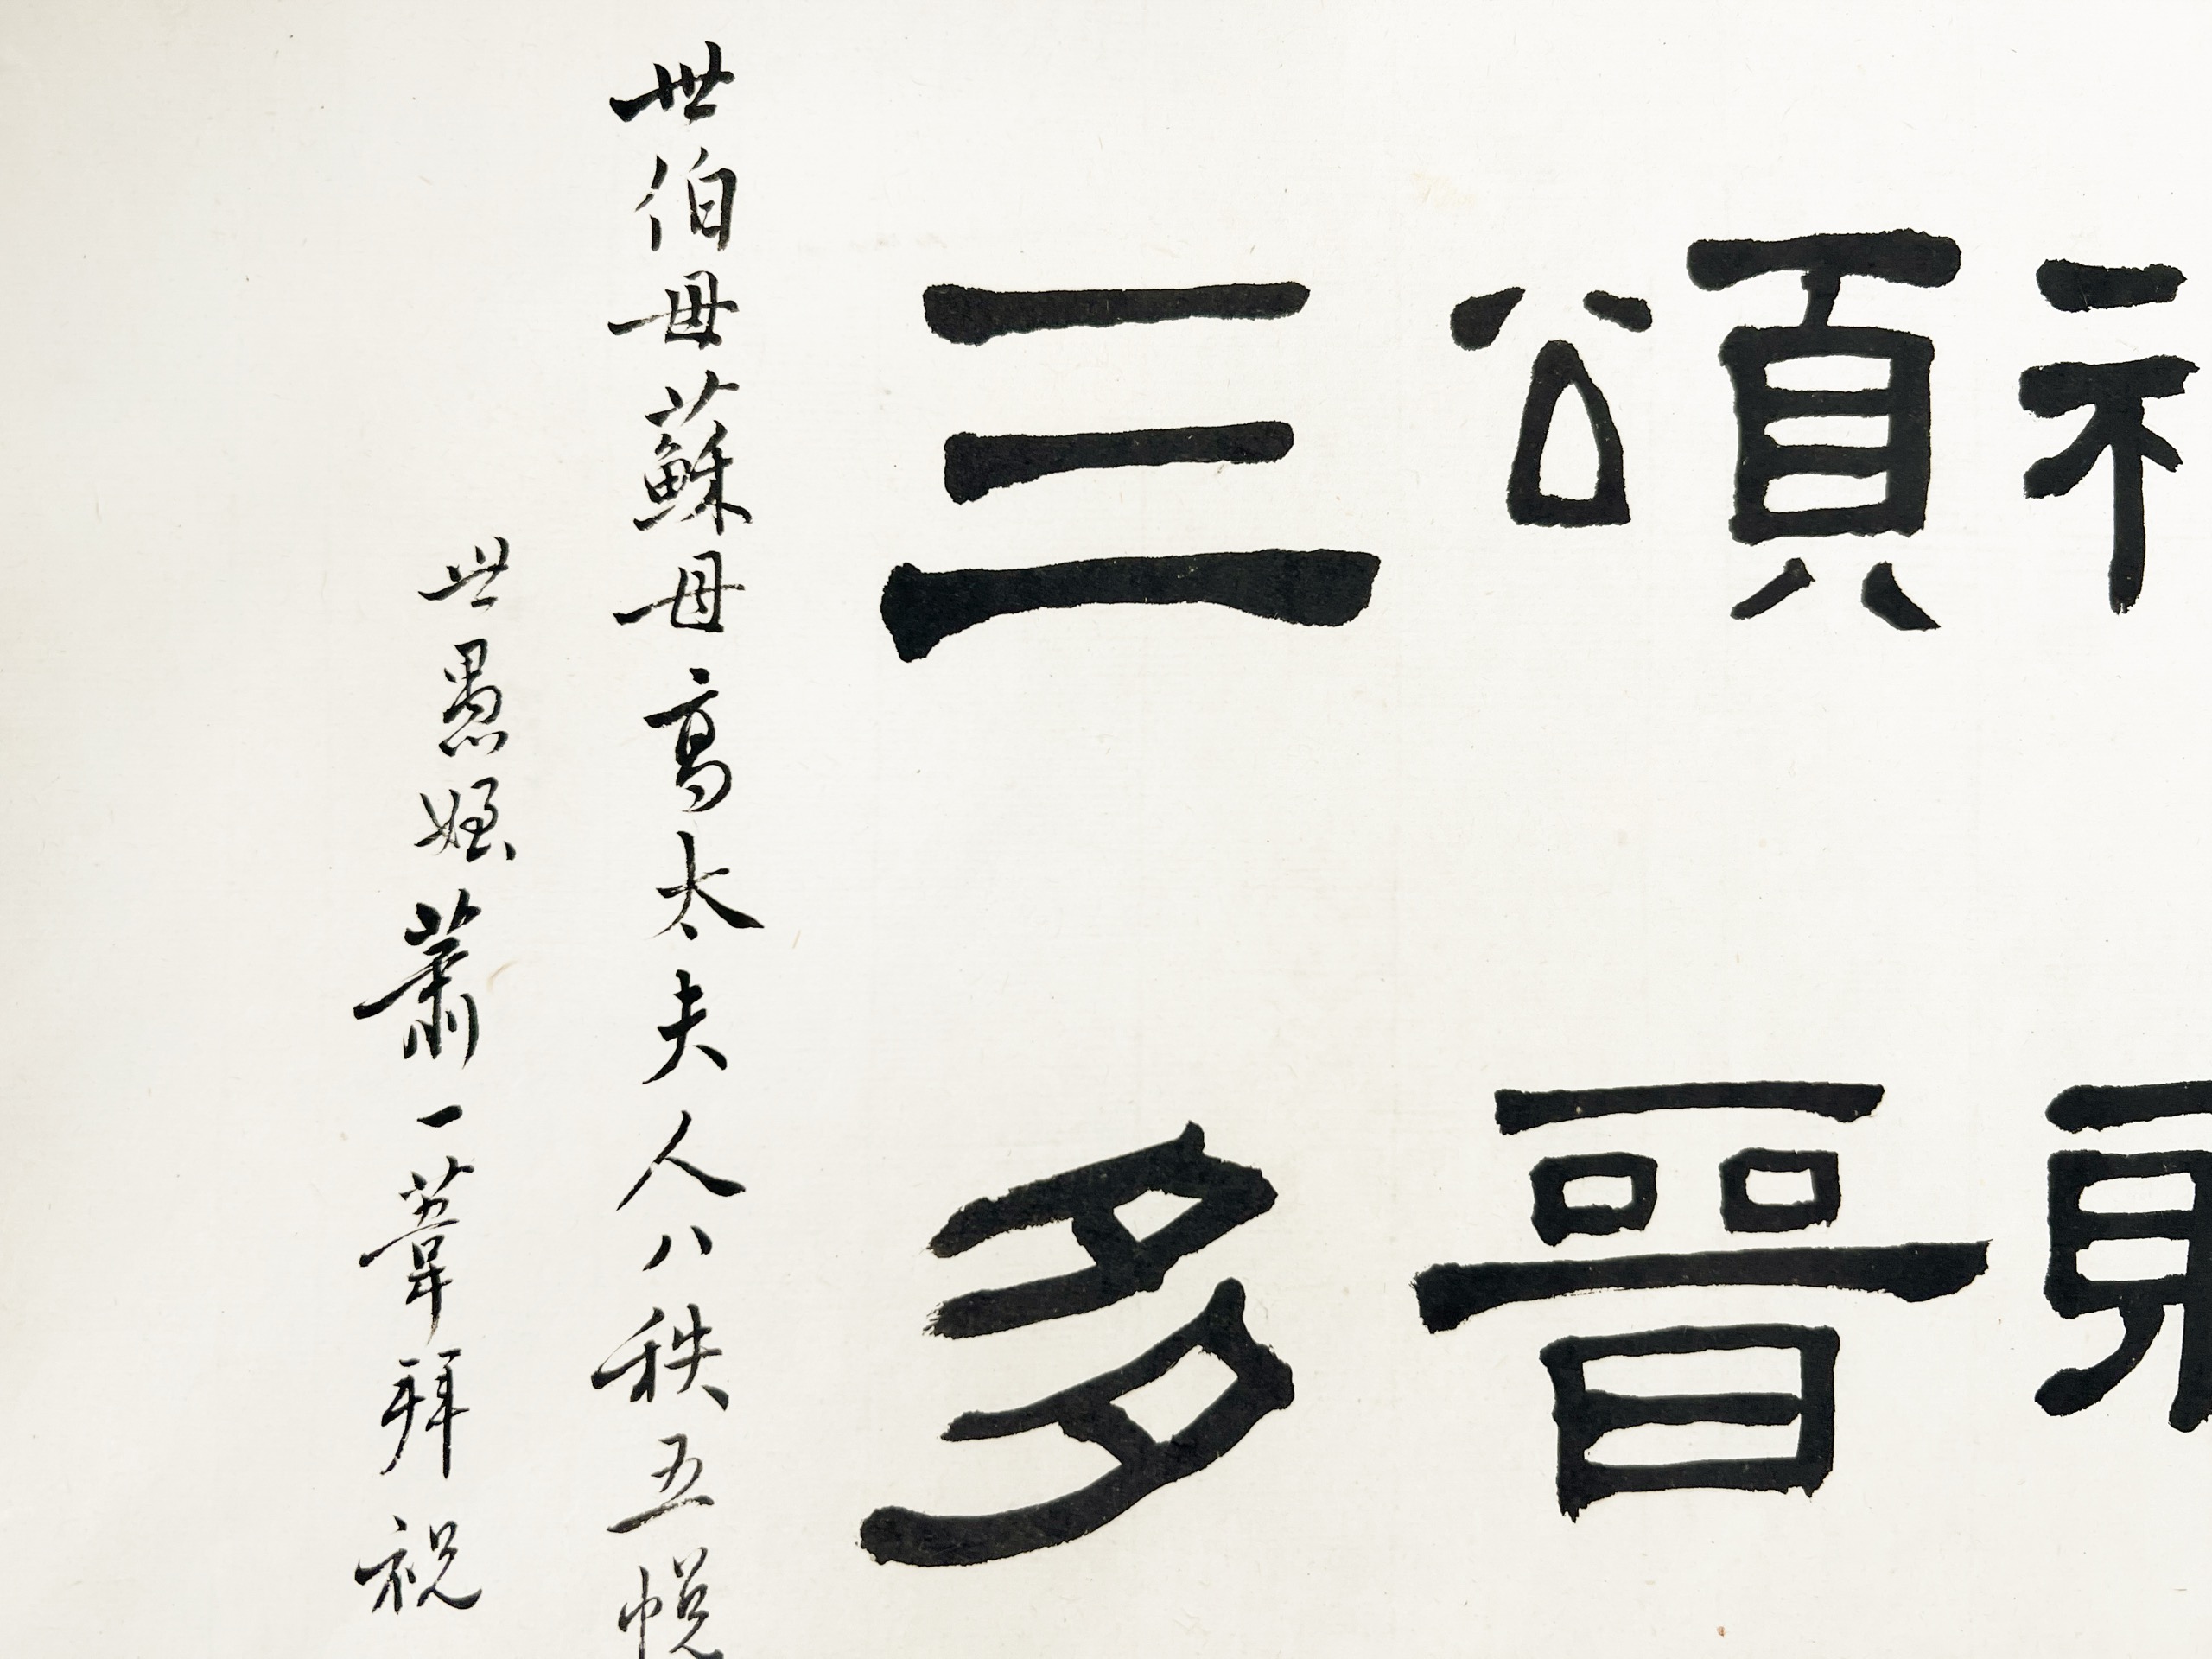 頌晉
三多
世伯母蘇母高太夫人八秩五帨
世愚姪蕭一葦拜祝